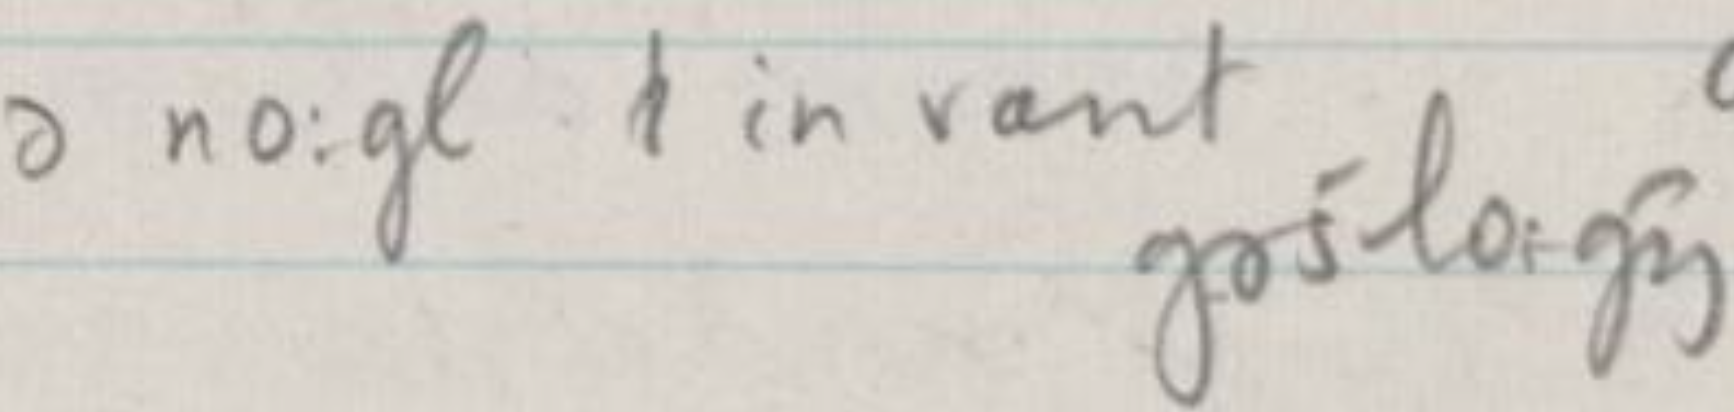 ə no:gl in vant
gəšlo:gŋ̄